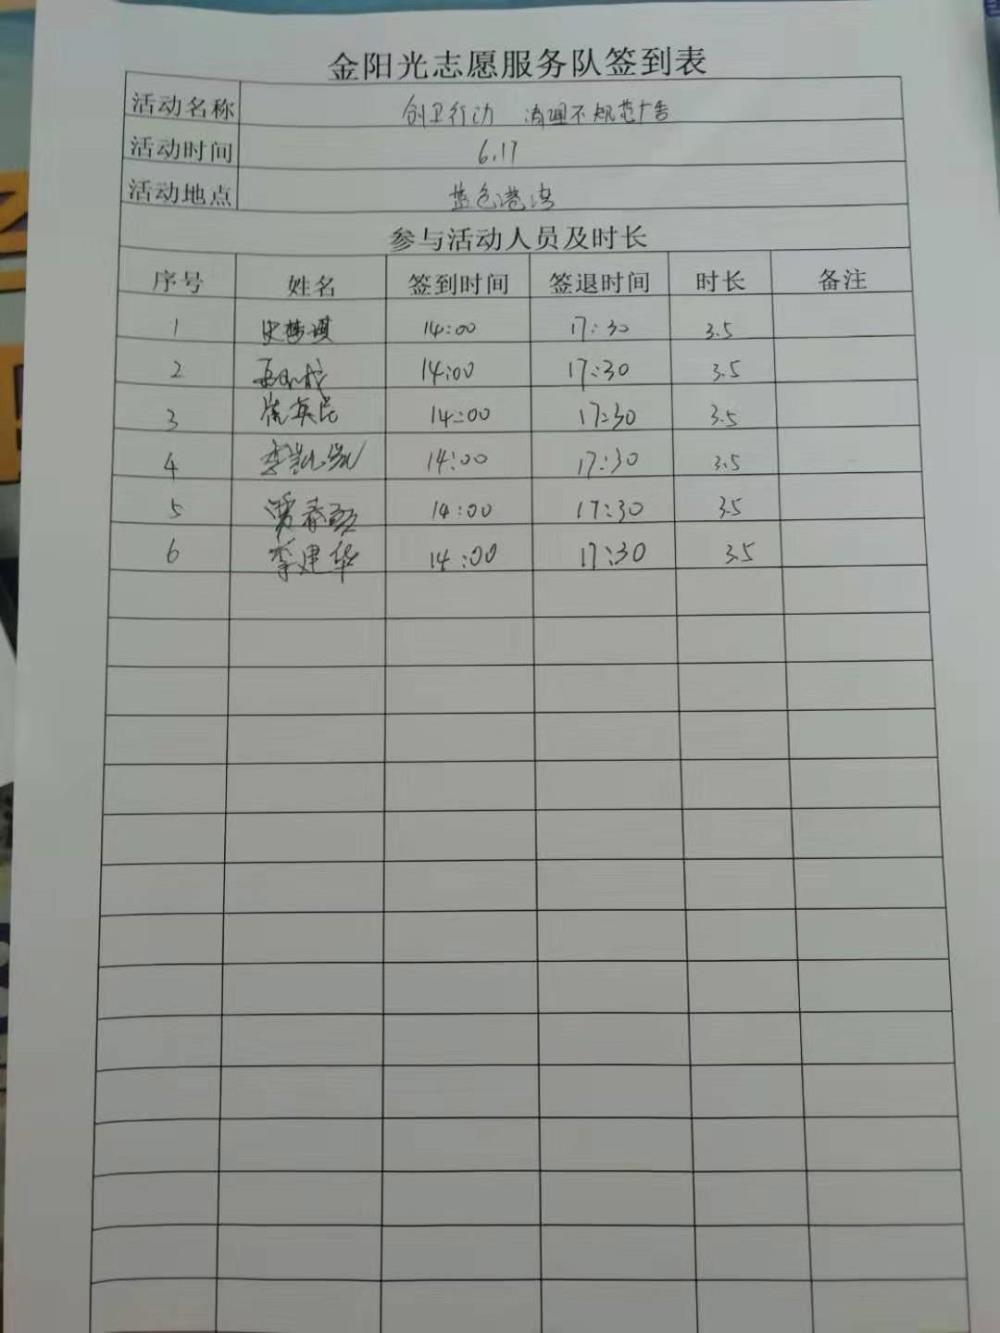 金阳光志愿服务队签到表
活动名称 创卫行动 清理不规范广告
活动时间 6.17
活动地点 蓝色港湾
参与活动人员及时长
序号 姓名 签到时间 签退时间 时长 备注
1 14:00 17:30 3.5
2 14:00 17:30 3.5
3 14:00 17:30 3.5
4 李凯凯 14:00 17:30 3.5
5 14:00 17:30 3.5
6 李建华 14:00 17:30 3.5